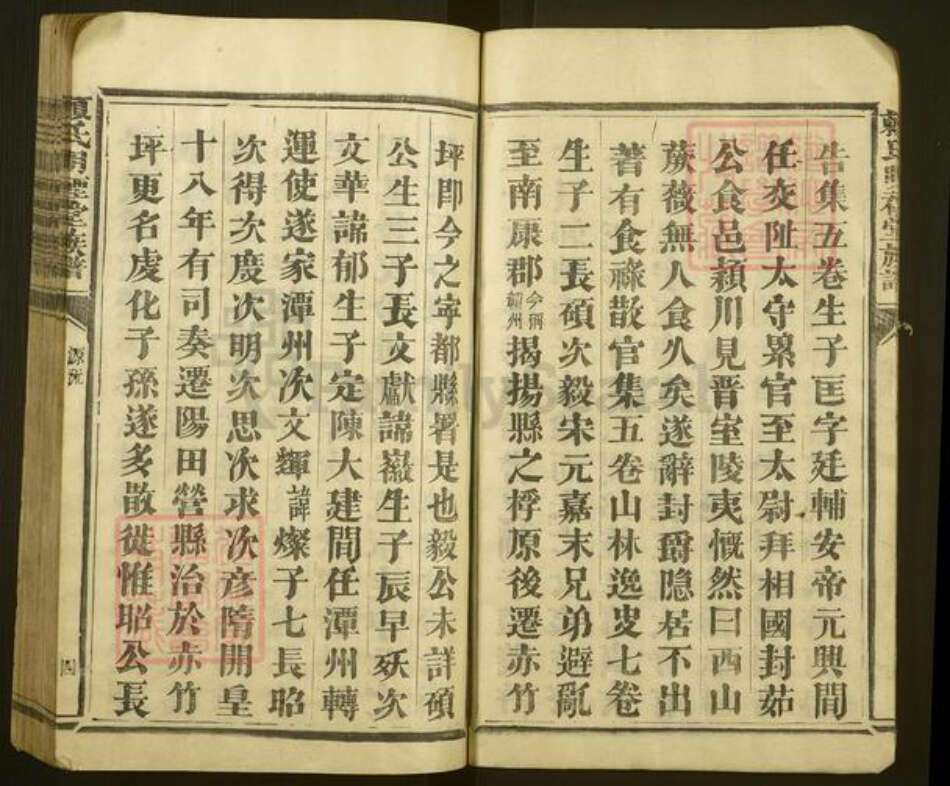 告集五卷生子匡字廷輔安帝元興間
任交阯太守累官至太尉拜相國封茹
公食邑潁川見晉室陵夷慨然曰西山
蕨薇無人食久矣遂辭封爵隐居不出
著有食祿散官集五卷山林逸叟七卷
生子二長碩次毅宋元嘉末兄弟避亂
至南康郡今稱贛州揭揚縣之桴原後遷赤竹
坪卽今之寜都縣署是也毅公未詳碩
公生三子長文獻諱嶽生子辰早殀次
文華諱郁生子定陳大建間任潭州轉
運使遂家潭州次文輝諱燦子七長昭
次得次度次明次思次求次彦隋開皇
十八年有司奏遷陽田營縣治於赤竹
坪更名虔化子孫遂多散徙惟昭公長
源流
四